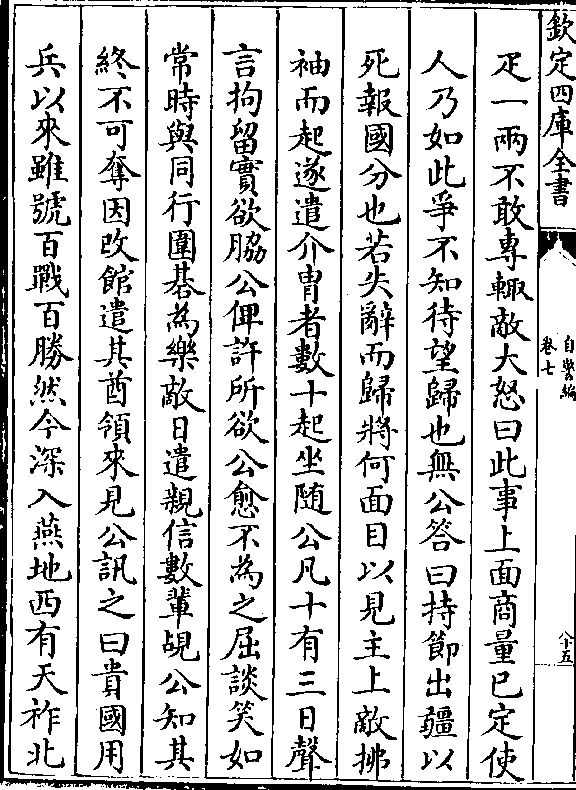 欽定四庫全書
自警編
卷七
八十五
疋一兩不敢專輙敵大怒曰此事上面商量已定使
人乃如此爭不知待望歸也無公答曰持節出疆以
死報國分也若失辭而歸將何面目以見主上敵拂
袖而起遂遣介胄者數十起坐随公凡十有三日聲
言拘留實欲脇公俾許所欲公愈不為之屈談笑如
常時與同行圍碁為樂敵日遣親信數輩覘公知其
終不可奪因改館遣其酋領來見公訊之曰貴國用
兵以來雖號百戰百勝然今深入燕地西有天祚北